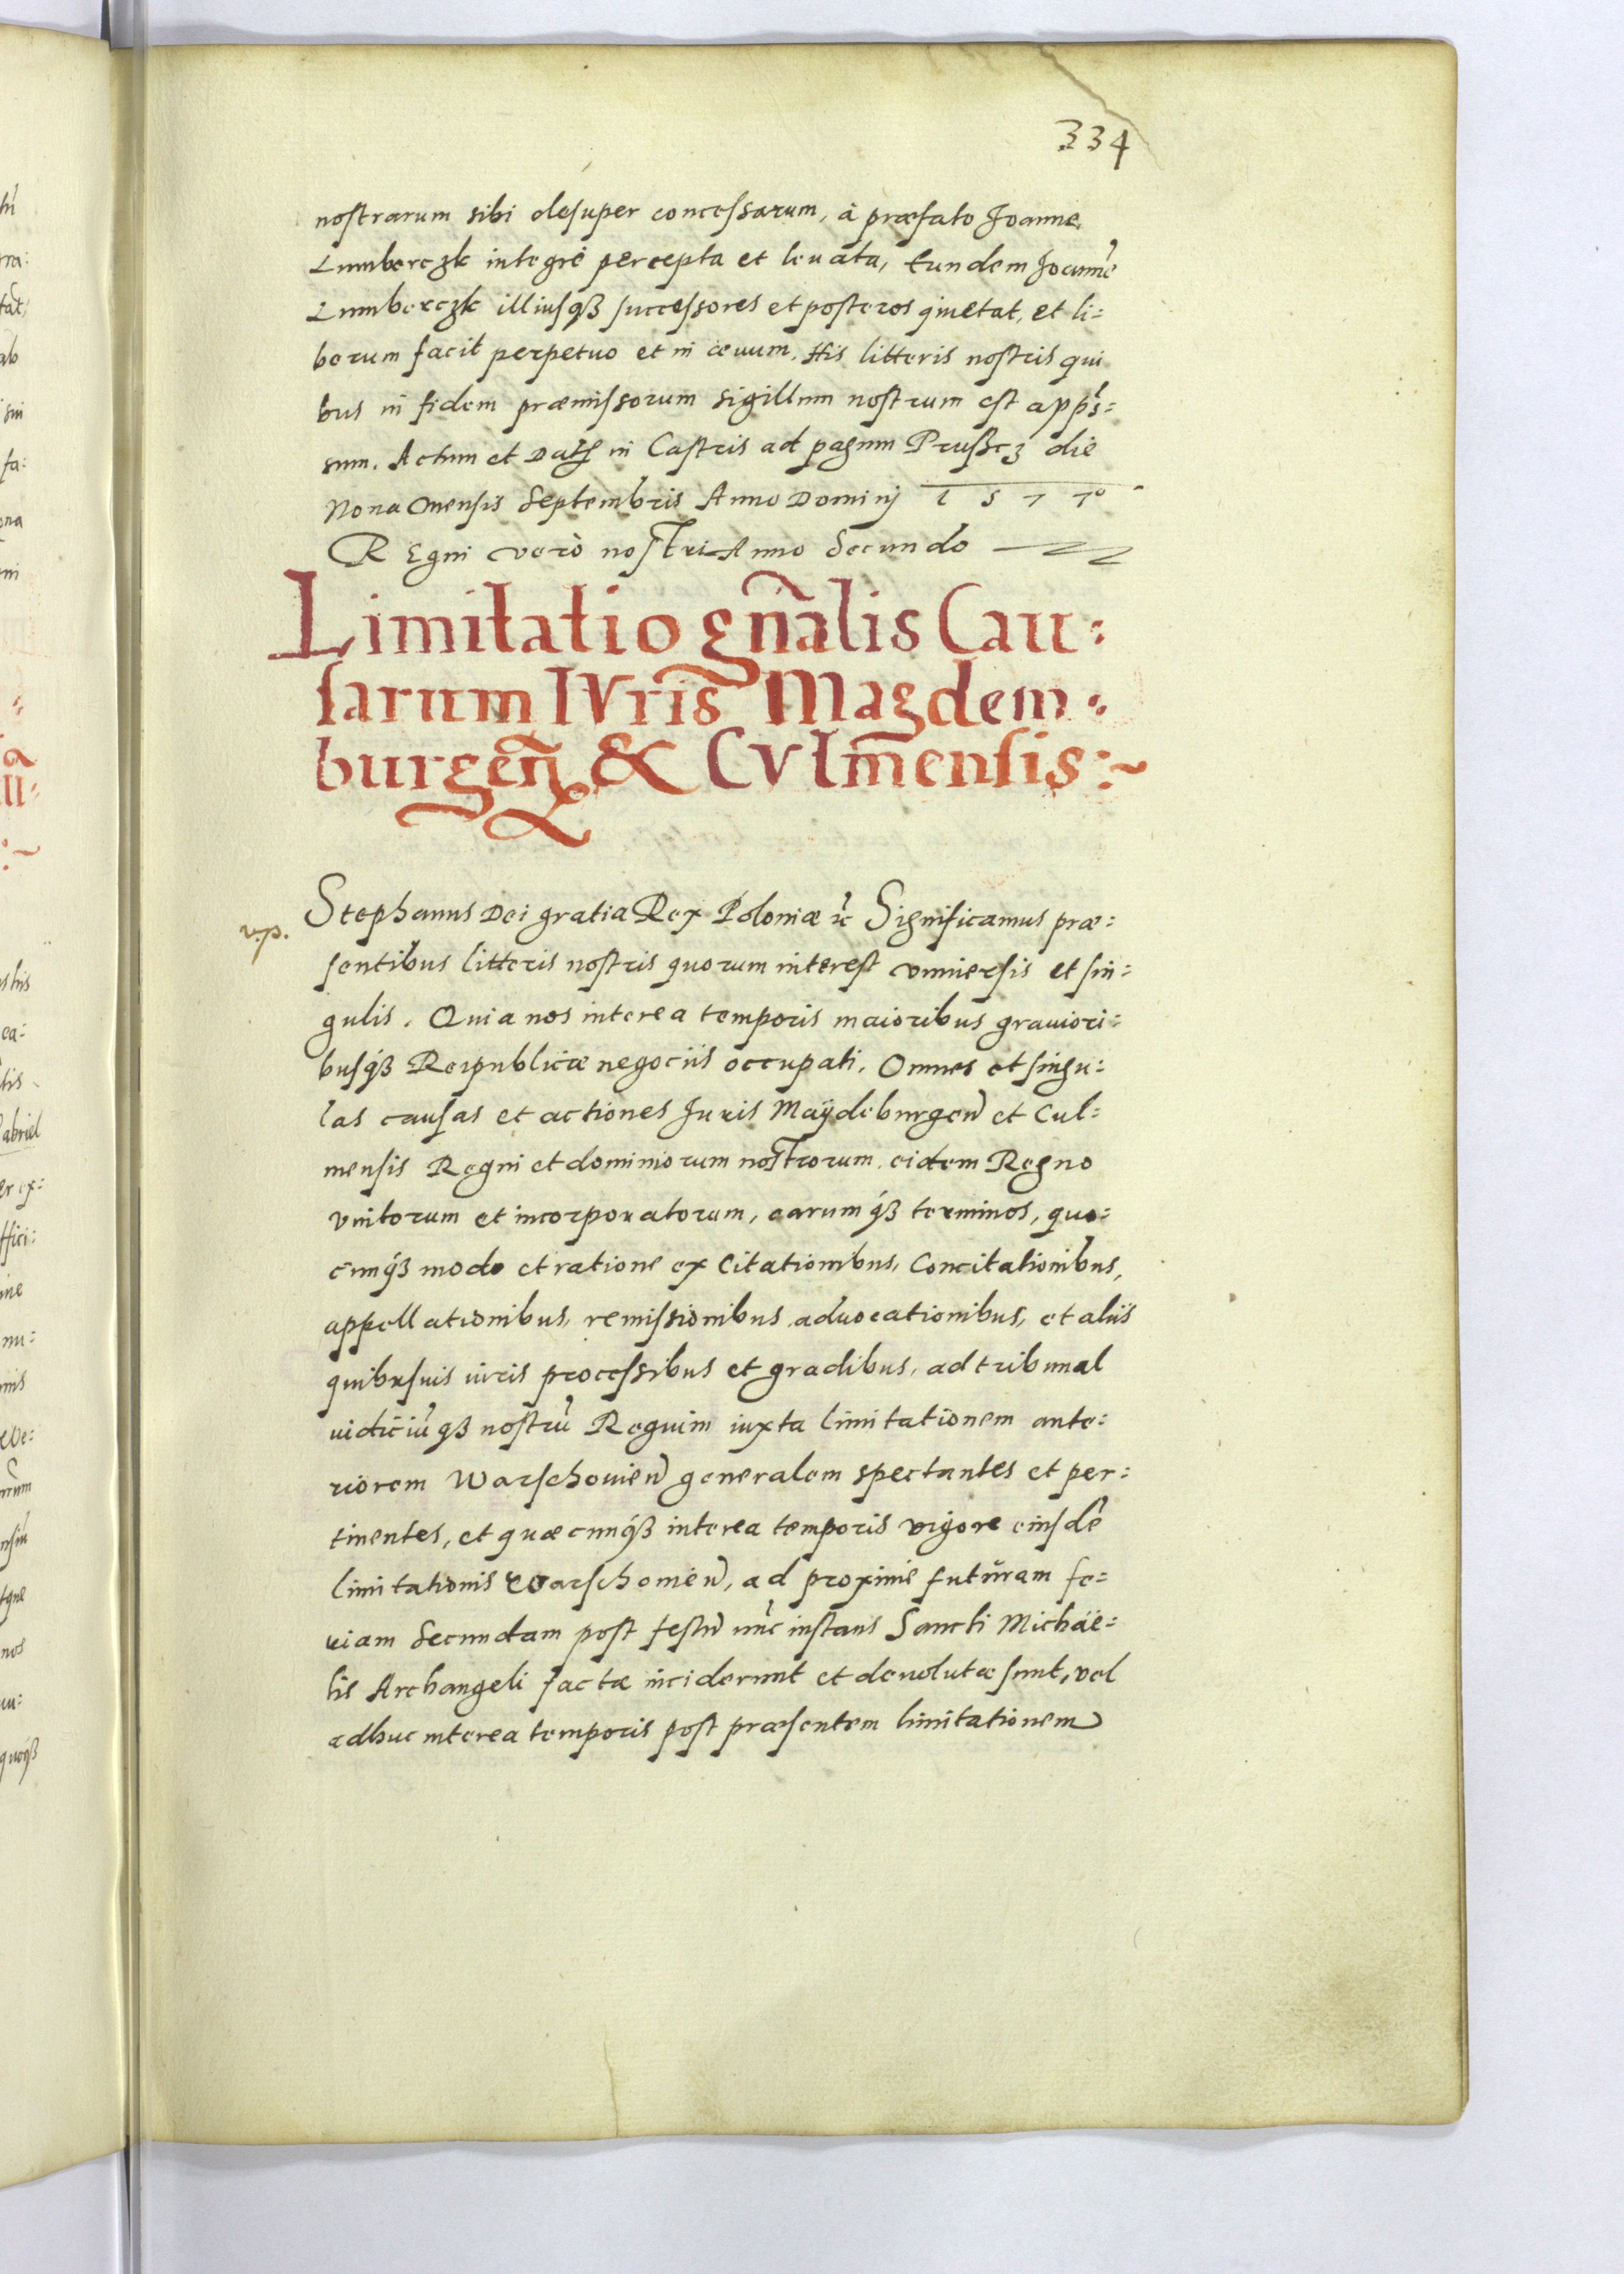 334
nostrarum sibi desuper concessarum, à præfato Joanne
Lumberczk integrè percepta et leuata, eundem Joannē
Lumberczk illiusqȝ successores et posteros quietat, et li=
berum facit perpetuo et in æuum. His litteris nostris qui
bus in fidem præmissorum sigillum nostrum est apprs̄=
sum. Actum et Datӡ in Castris ad pagum Prusscz die
Nona Mensis Septembris Anno Dominj 1577º
REgni verò nostri Anno Secundo
Limitatio gn̄alis Cau=
sarum IVris Magdem=
burgen̄ & CVlmensis:~
v.p.
Stephanus Dei gratia Rex Poloniæ ꝛc̄ Significamus præ=
sentibus litteris nostris quorum interest vniuersis et sin=
gulis. Quia nos interea temporis maioribus grauiori=
busqȝ Reipublicæ negociis occupati, Omnes et singu=
las causas et actiones Juris Maÿdeburgen̄ et Cul=
mensis Regni et dominiorum nostrorum eidem Regno
vnitorum et incorporatorum, earumqȝ terminos, quo=
cunqȝ modo et ratione ex Citationibus, Concitationibus,
appellationibus, remissionibus, aduocationibus, et aliis
quibusuis iuris processibus et gradibus, ad tribunal
iudiciūqȝ nostrū Regium iuxta limitationem ante=
riorem Warschouien̄ generalem spectantes et per=
tinentes, et quæcunqȝ interea temporis vigore eiusdē
limitationis Warschouien̄, ad proximè futuram fe=
riam Secundam post festū nūc instans Sancti Michaë=
lis Archangeli factæ inciderunt et deuolutæ sunt, vel
adhuc interea temporis post præsentem limitationem